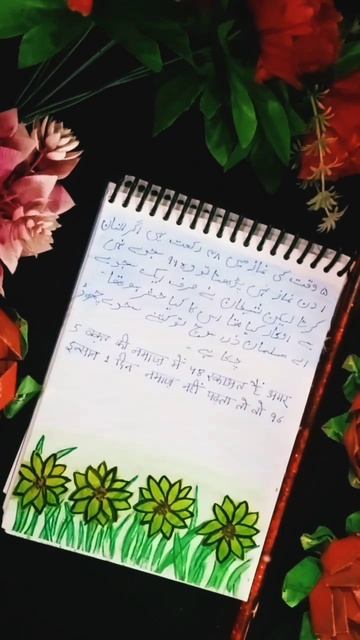 ۵ وقت کی نماز میں ۴۸ رکعت ہیں اگر انسان
۱ دن نماز نہیں پڑھتا تو وہ ۹۶ سجدے نہیں
کرتا لیکن شیطان نے صرف ایک سجدے
سے انکار کیا تھا اس کا کیا حشر ہوا تھا۔
اے مسلمان ذرا سوچ تو کتنے سجدے چھوڑ
چکا ہے
5 वक़्त की नमाज में 48 रकाअत हैं अगर
इन्सान 1 दिन नमाज नहीं पढता तो वो 96